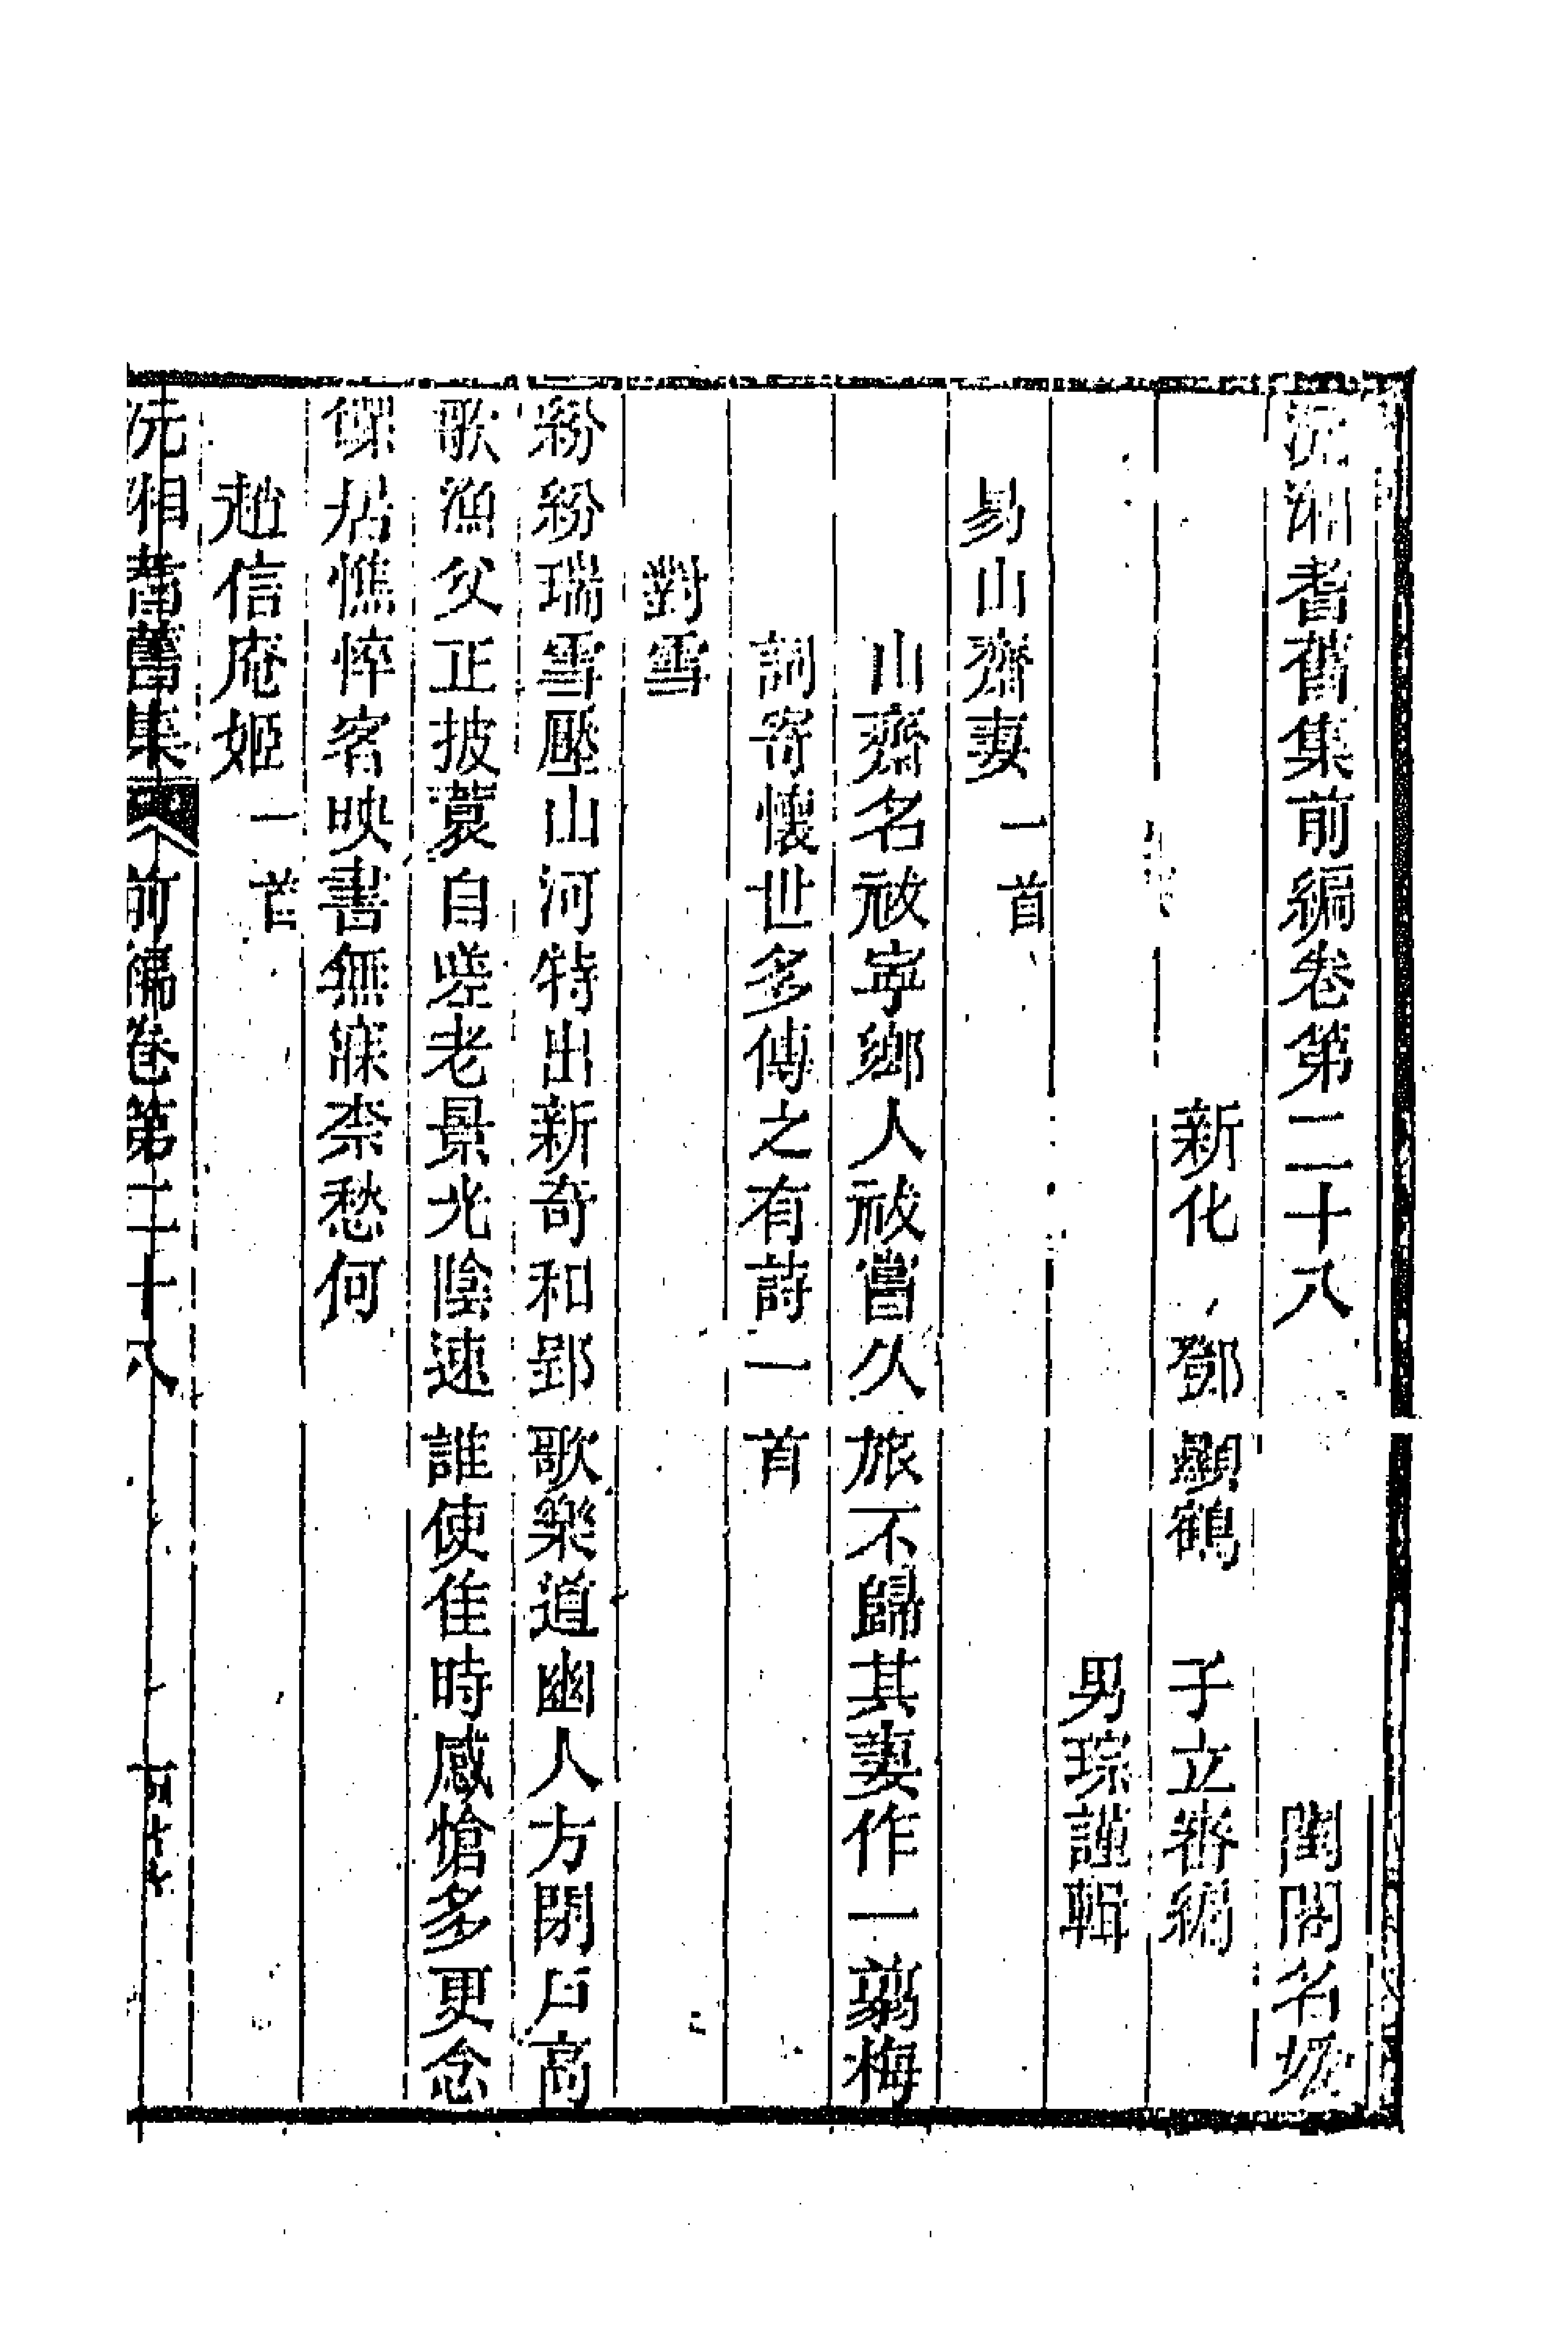 沅湘耆舊集前編卷第二十八　閨閣名媛
新化　鄧顯鶴　子立審編
男琮謹輯
易山齋妻一首
山齋名祓寧鄉人祓嘗久旅不歸其妻作一翦梅
詞寄懷世多傳之有詩一首
對雪
紛紛瑞雪壓山河特出新奇和郢歌樂道幽人方閉戶高
歌漁父正披蓑自嗟老景光陰速誰使佳時感愴多更念
鰥居憔悴客映書無寐柰愁何
趙信庵姬一首
沅湘耆舊集　前編卷第二十八